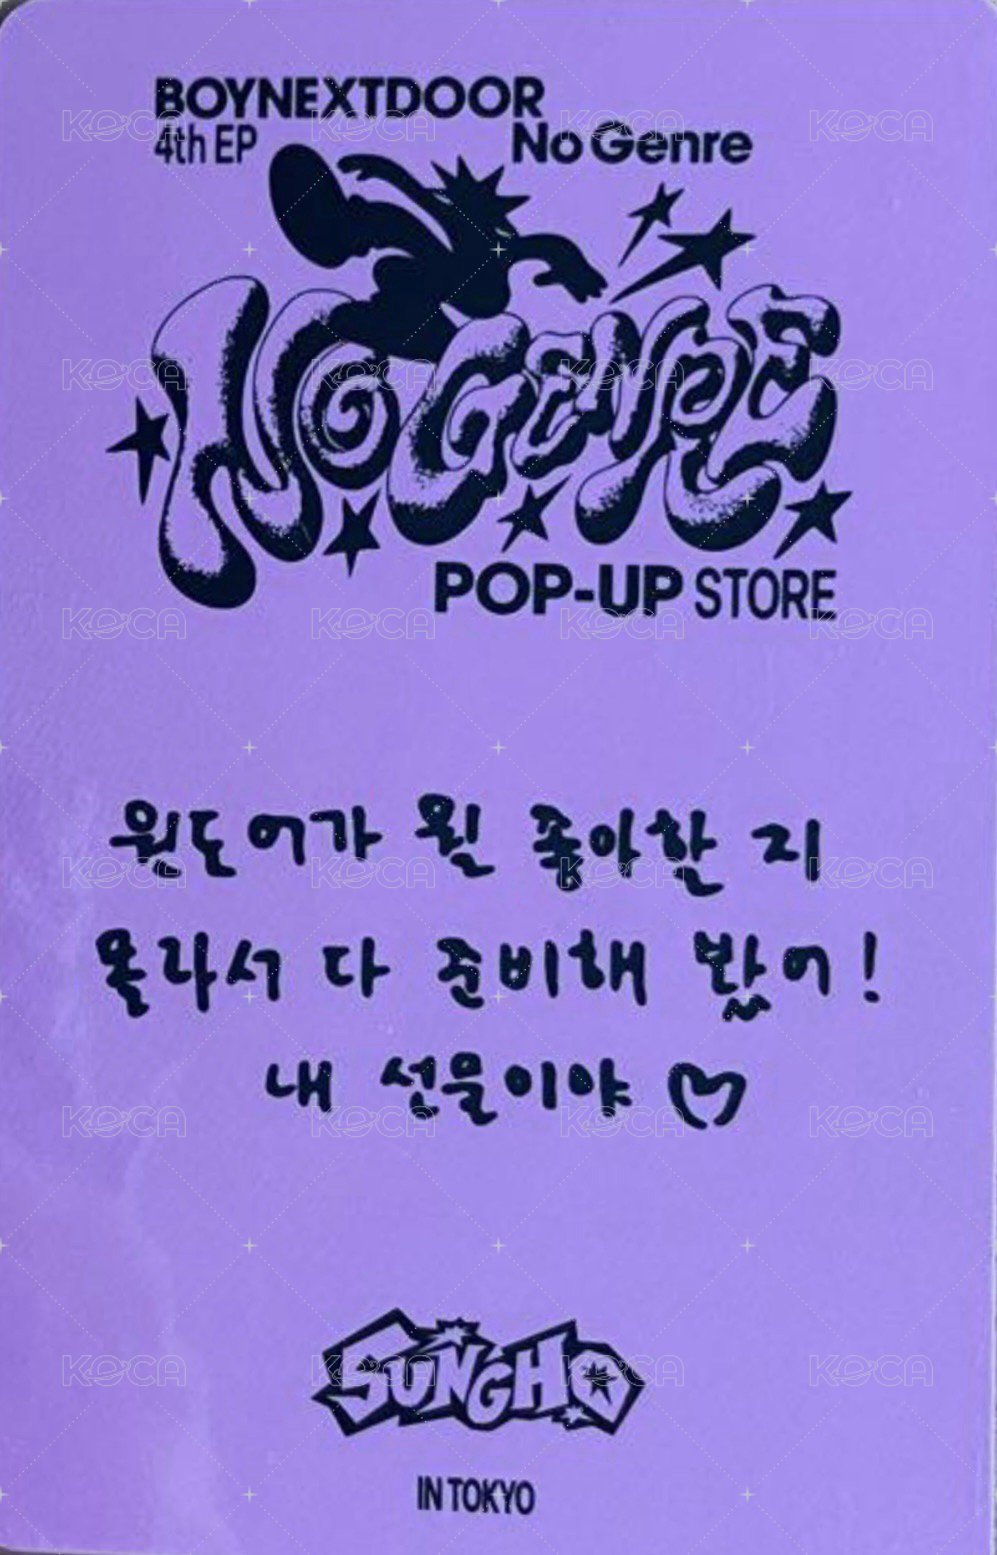 BOYNEXTDOOR
4th EP No Genre
NO GENRE
POP-UP STORE
원도어가 뭘 좋아할 지
몰라서 다 준비해 봤어!
내 선물이야 ♡
SUNGHO
IN TOKYO
KOCA